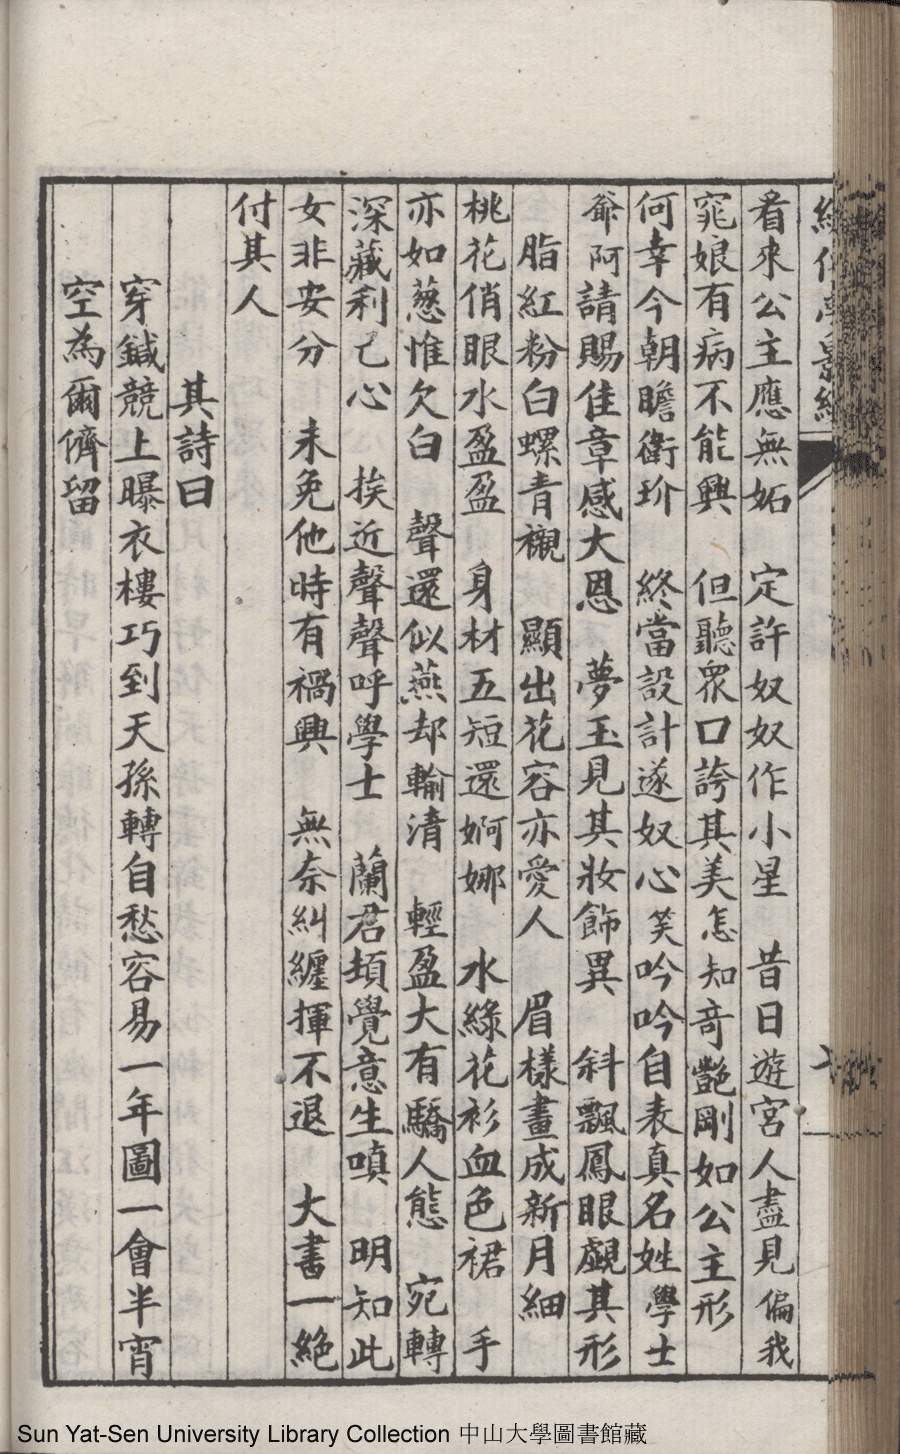 看來公主應無妬　定許奴奴作小星　昔日遊宮人盡見偏我
窕娘有病不能興　但聽衆口誇其美怎知竒艷剛如公主形
何幸今朝瞻衛玠　終當設計遂奴心笑吟吟自表真名姓學士
爺阿請賜佳章感大恩　夢玉見其妝飾異　斜飄鳳眼覷其形
脂紅粉白螺青襯　顯出花容亦愛人　眉樣畫成新月細
桃花俏眼水盈盈　身材五短還婀娜　水綠花衫血色裙　手
亦如蔥惟欠白　聲還似燕却輸清　輕盈大有驕人態　宛轉
深藏利己心　挨近聲聲呼學士　蘭君頓覺意生嗔　明知此
女非安分　未免他時有禍興　無奈糾纏揮不退　大書一絶
付其人
其詩曰
穿鍼競上曝衣樓巧到天孫轉自愁容易一年圖一會半宵
空為爾儕留
Sun Yat-Sen University Library Collection 中山大學圖書館藏